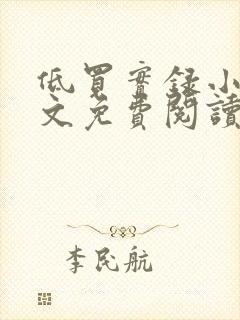 低買實錄小
文免費閱讀
李民航